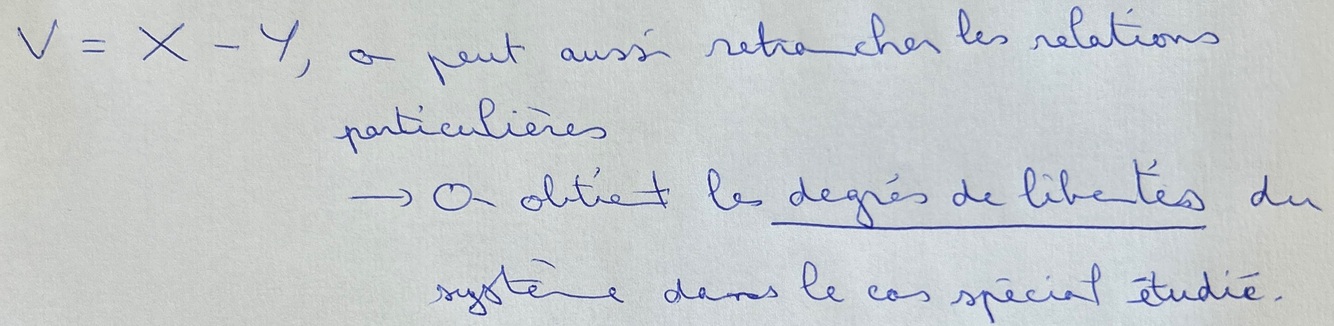 V = X - Y, on peut aussi retrancher les relations
particulières
→ On obtient les degrés de libertés du
système dans le cas spécial étudié.